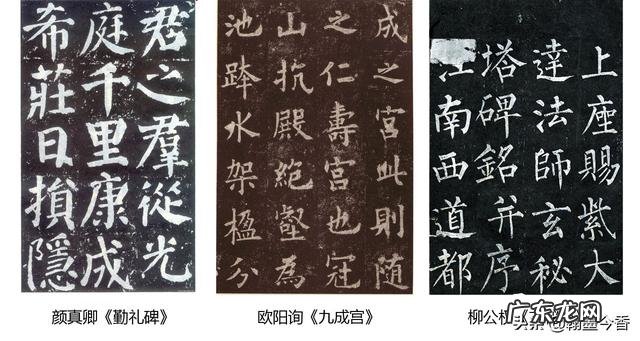 君之羣從光
庭千里康成
希莊日損隱
成之宮此則随
之仁壽宮也冠
山抗殿絶壑為
池跨水架楹分
上座賜紫大
達法師玄秘
塔碑銘并序
江南西道都
颜真卿《勤礼碑》
欧阳询《九成宫》
柳公权
广东龙网
头条@翰墨今香